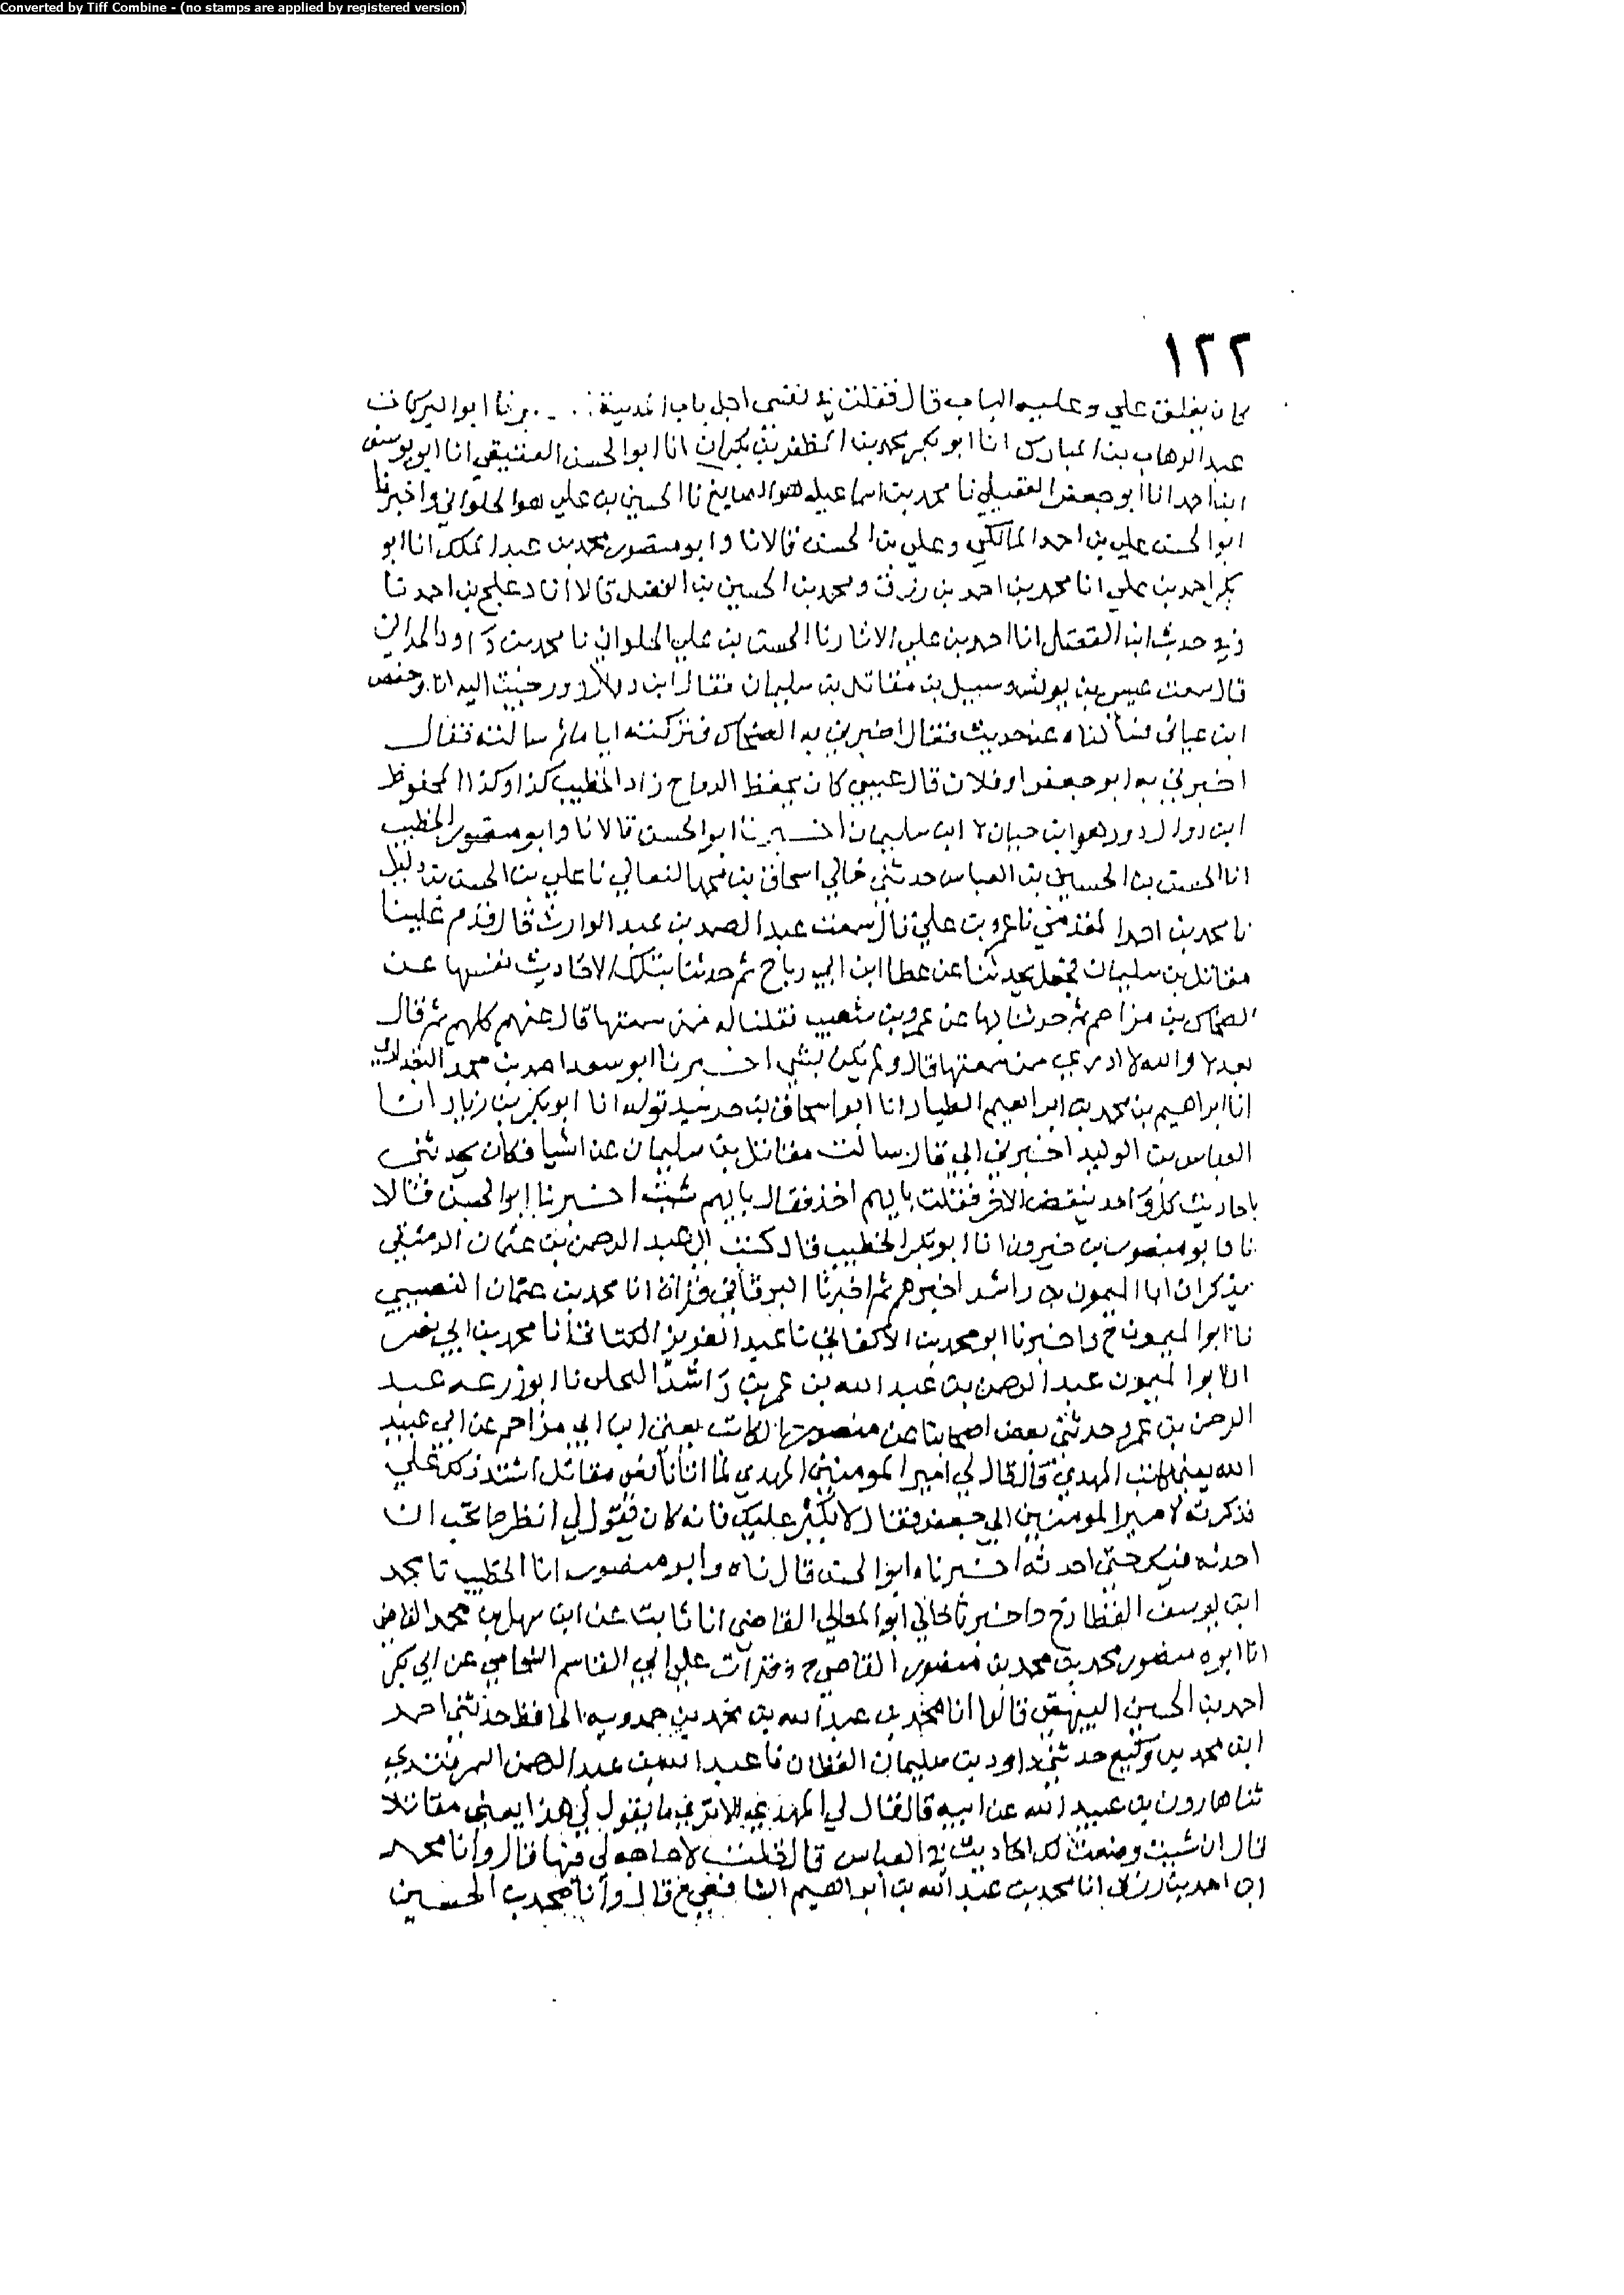 Converted by Tiff Combine - (no stamps are applied by registered version)
١٢٢
كان يغلق علي وعليه الباب قال فقلت في نفسي اجل باب المدينة اخبرنا ابو البركات
عبد الوهاب بن المبارك انا ابو بكر محمد بن المظفر بن بكران انا ابو الحسن العتيقي انا ابو يوسف
ابن احمد انا ابو جعفر العقيلي نا محمد بن اسماعيل هو الصايغ نا الحسين بن علي هو الحلواني واخبرنا
ابو الحسن علي بن احمد المالكي وعلي بن الحسن قالا نا وابو منصور محمد بن عبد الملك انا ابو
بكر احمد بن علي انا محمد بن احمد بن رزق ومحمد بن الحسين بن الفضل قالا انا دعلج بن احمد نا
وفي حديث ابن الفضل انا احمد بن علي الابار نا الحسن بن علي الحلواني نا محمد بن داود الحداني
قال سمعت عيسى بن يونس وسيل بن مقاتل بن سليمان فقال ابن دوال دور جيت اليه انا وحفص
ابن غياث فسألناه عن حديث فقال اخبرني به الضحاك فتركته اياما ثم سالته فقال
اخبرني به ابو جعفر او فلان قال عيسى كان يحفظ الرماح زاد الخطيب كذا وكذا المحفوظ
ابن دوال دور هو ابن حيان لا ابن سليمان اخبرنا ابو الحسن قالا نا وابو منصور الخطيب
انا الحسن بن الحسين بن العباس حدثني خالي اسحاق بن محمد النعالي نا علي بن الحسن بن دليل
نا محمد بن احمد المقدمي نا عمرو بن علي قال سمعت عبد الصمد بن عبد الوارث قال قدم علينا
مقاتل بن سليمان فجعل يحدثنا عن عطا ابن ابي رباح ثم حدثنا بتلك الاحاديث نفسها عن
الضحاك بن مزاحم ثم حدثنا بها عن عمرو بن شعيب فقلنا له ممن سمعتها قال عنهم كلهم ثم قال
بعد لا والله لا ادري ممن سمعتها قال ولم يكن بشي اخبرنا ابو سعد احمد بن محمد البغدادي
انا ابراهيم بن محمد بن ابراهيم الطيار انا ابو اسحاق بن خرشيد قوله انا ابو بكر بن زياد انا
العباس بن الوليد اخبرني ابي قال سالت مقاتل بن سليمان عن اشيا فكان يحدثني
باحاديث كل واحد ينقض الاخر فقلت بايهم اخذ فقال بايهم شيت اخبرنا ابو الحسن قالا
نا وابو منصور بن خيرون انا ابو بكر الخطيب قال كتب الي عبد الرحمن بن عثمان الدمشقي
يذكر ان ابا الميمون بن راشد اخبرهم ثم اخبرنا البرقاني قراة انا محمد بن عثمان النصيبي
نا ابو الميمون ح واخبرنا ابو محمد بن الاكفاني نا عبد العزيز الكتاني انا محمد بن ابي نصر
انا ابو الميمون عبد الرحمن بن عبد الله بن عمر بن راشد البجلي نا ابو زرعه عبد
الرحمن بن عمرو حدثني بعض اصحابنا عن منصور الكاتب يعني ابن ابي مزاحم عن ابي عبيد
الله يعني كاتب المهدي قال قال لي امير المومنين المهدي لما اتانا نعي مقاتل اشتد ذلك علي
فذكرته لامير المومنين ابي جعفر فقال لا يكبر عليك فانه كان يقول لي انظر ما تحب ان
احدثه فيك حتى احدثه اخبرناه ابو الحسن قال نا وابو منصور انا الخطيب نا محمد
ابن يوسف القطان ح واخبرنا خالي ابو المعالي القاضي انا ثابت عن ابن سهل بن محمد القاضي
انا ابو منصور محمد بن محمد بن منصور القاضي ح وقرات على ابي القاسم الشحامي عن ابي بكر
احمد بن الحسين البيهقي قالوا انا محمد بن عبد الله بن محمد بن حمدويه الحافظ حدثني احمد
ابن محمد بن وكيع حدثني داود بن سليمان القطان نا عبد الله بن عبد الرحمن السمرقندي
ثنا هارون بن عبيد الله عن ابيه قال قال لي المهدي الا ترى ما يقول لي هذا يعني مقاتلا
قال ان شيت وضعت لك احاديث في العباس قال قلت لا حاجه لي فيها قال وانا محمد
ابن احمد بن رزق انا محمد بن عبد الله بن ابراهيم الشافعي ح قال وانا محمد بن الحسين